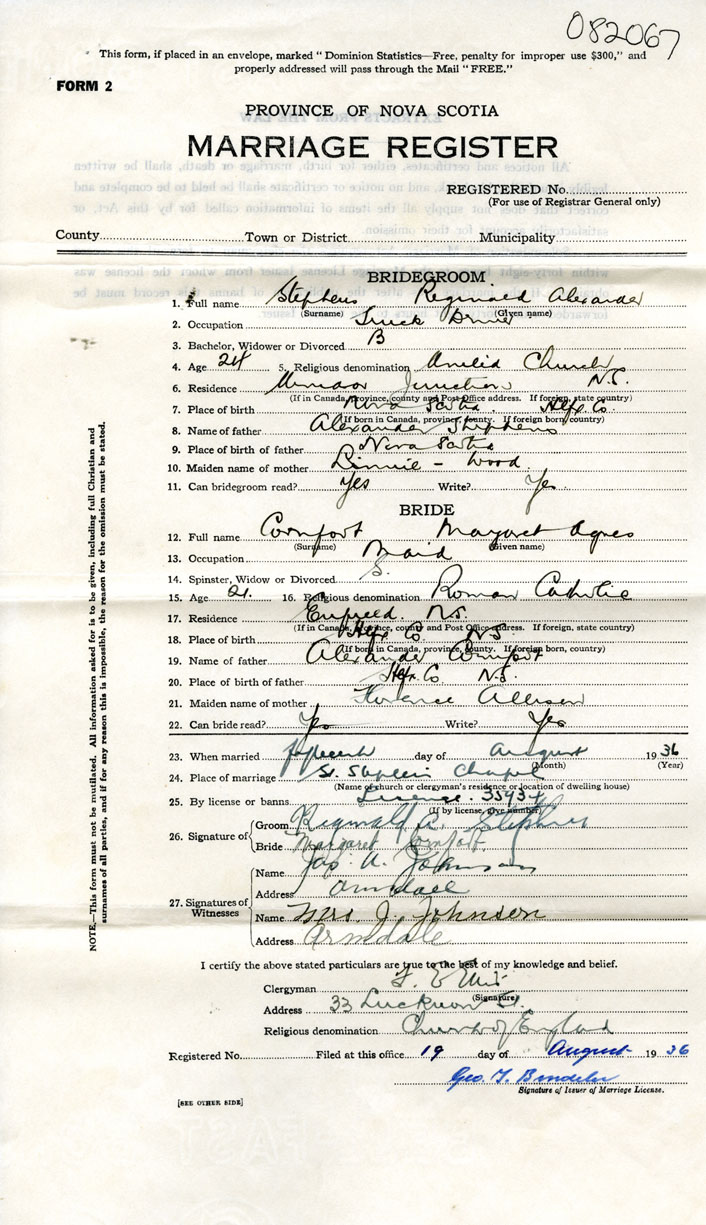 082067
This form, if placed in an envelope, marked "Dominion Statistics—Free, penalty for improper use $300," and
properly addressed will pass through the Mail "FREE."
FORM 2
PROVINCE OF NOVA SCOTIA
MARRIAGE REGISTER
REGISTERED No.
(For use of Registrar General only)
County Town or District Municipality
BRIDEGROOM
1. Full name Stephens Reginald Alexander
(Surname) (Given name)
2. Occupation Truck Driver
3. Bachelor, Widower or Divorced B
4. Age 24 5. Religious denomination United Church
6. Residence Windsor Junction N.S.
(If in Canada, Province, county and Post Office address. If foreign, state country)
7. Place of birth Nova Scotia Hfx. Co.
(If born in Canada, province, county. If foreign born, country)
8. Name of father Alexander Stephens
9. Place of birth of father Nova Scotia
10. Maiden name of mother Linnie - Wood
11. Can bridegroom read? Yes Write? Yes
BRIDE
12. Full name Comfort Margaret Agnes
(Surname) (Given name)
13. Occupation Maid
14. Spinster, Widow or Divorced S.
15. Age 21. 16. Religious denomination Roman Catholic
17. Residence N.S.
(If in Canada, Province, county and Post Office address. If foreign, state country)
18. Place of birth Hfx. Co N.S.
(If born in Canada, province, county. If foreign born, country)
19. Name of father Alexander Comfort
20. Place of birth of father Hfx. Co N.S.
21. Maiden name of mother Florence Allison
22. Can bride read? Yes Write? Yes
23. When married fifteenth day of August 1936
(Month) (Year)
24. Place of marriage St. Stephen's Chapel
(Name of church or clergyman's residence or location of dwelling house)
25. By license or banns License. 35934
(If by license, give number)
26. Signature of Groom Reginald A Stephens
Bride Margaret Comfort
27. Signatures of Witnesses Name Jas. A. Johnson
Address Armdale
Name Mrs. J. Johnson
Address Armdale
I certify the above stated particulars are true to the best of my knowledge and belief.
Clergyman
(Signature)
Address 33 Lucknow St.
Religious denomination Church of England
Registered No. Filed at this office 19 day of August 1936
Geo. T.
Signature of Issuer of Marriage License.
[SEE OTHER SIDE]
NOTE.—This form must not be mutilated. All information asked for is to be given, including full Christian and
surnames of all parties, and if for any reason this is impossible, the reason for the omission must be stated.